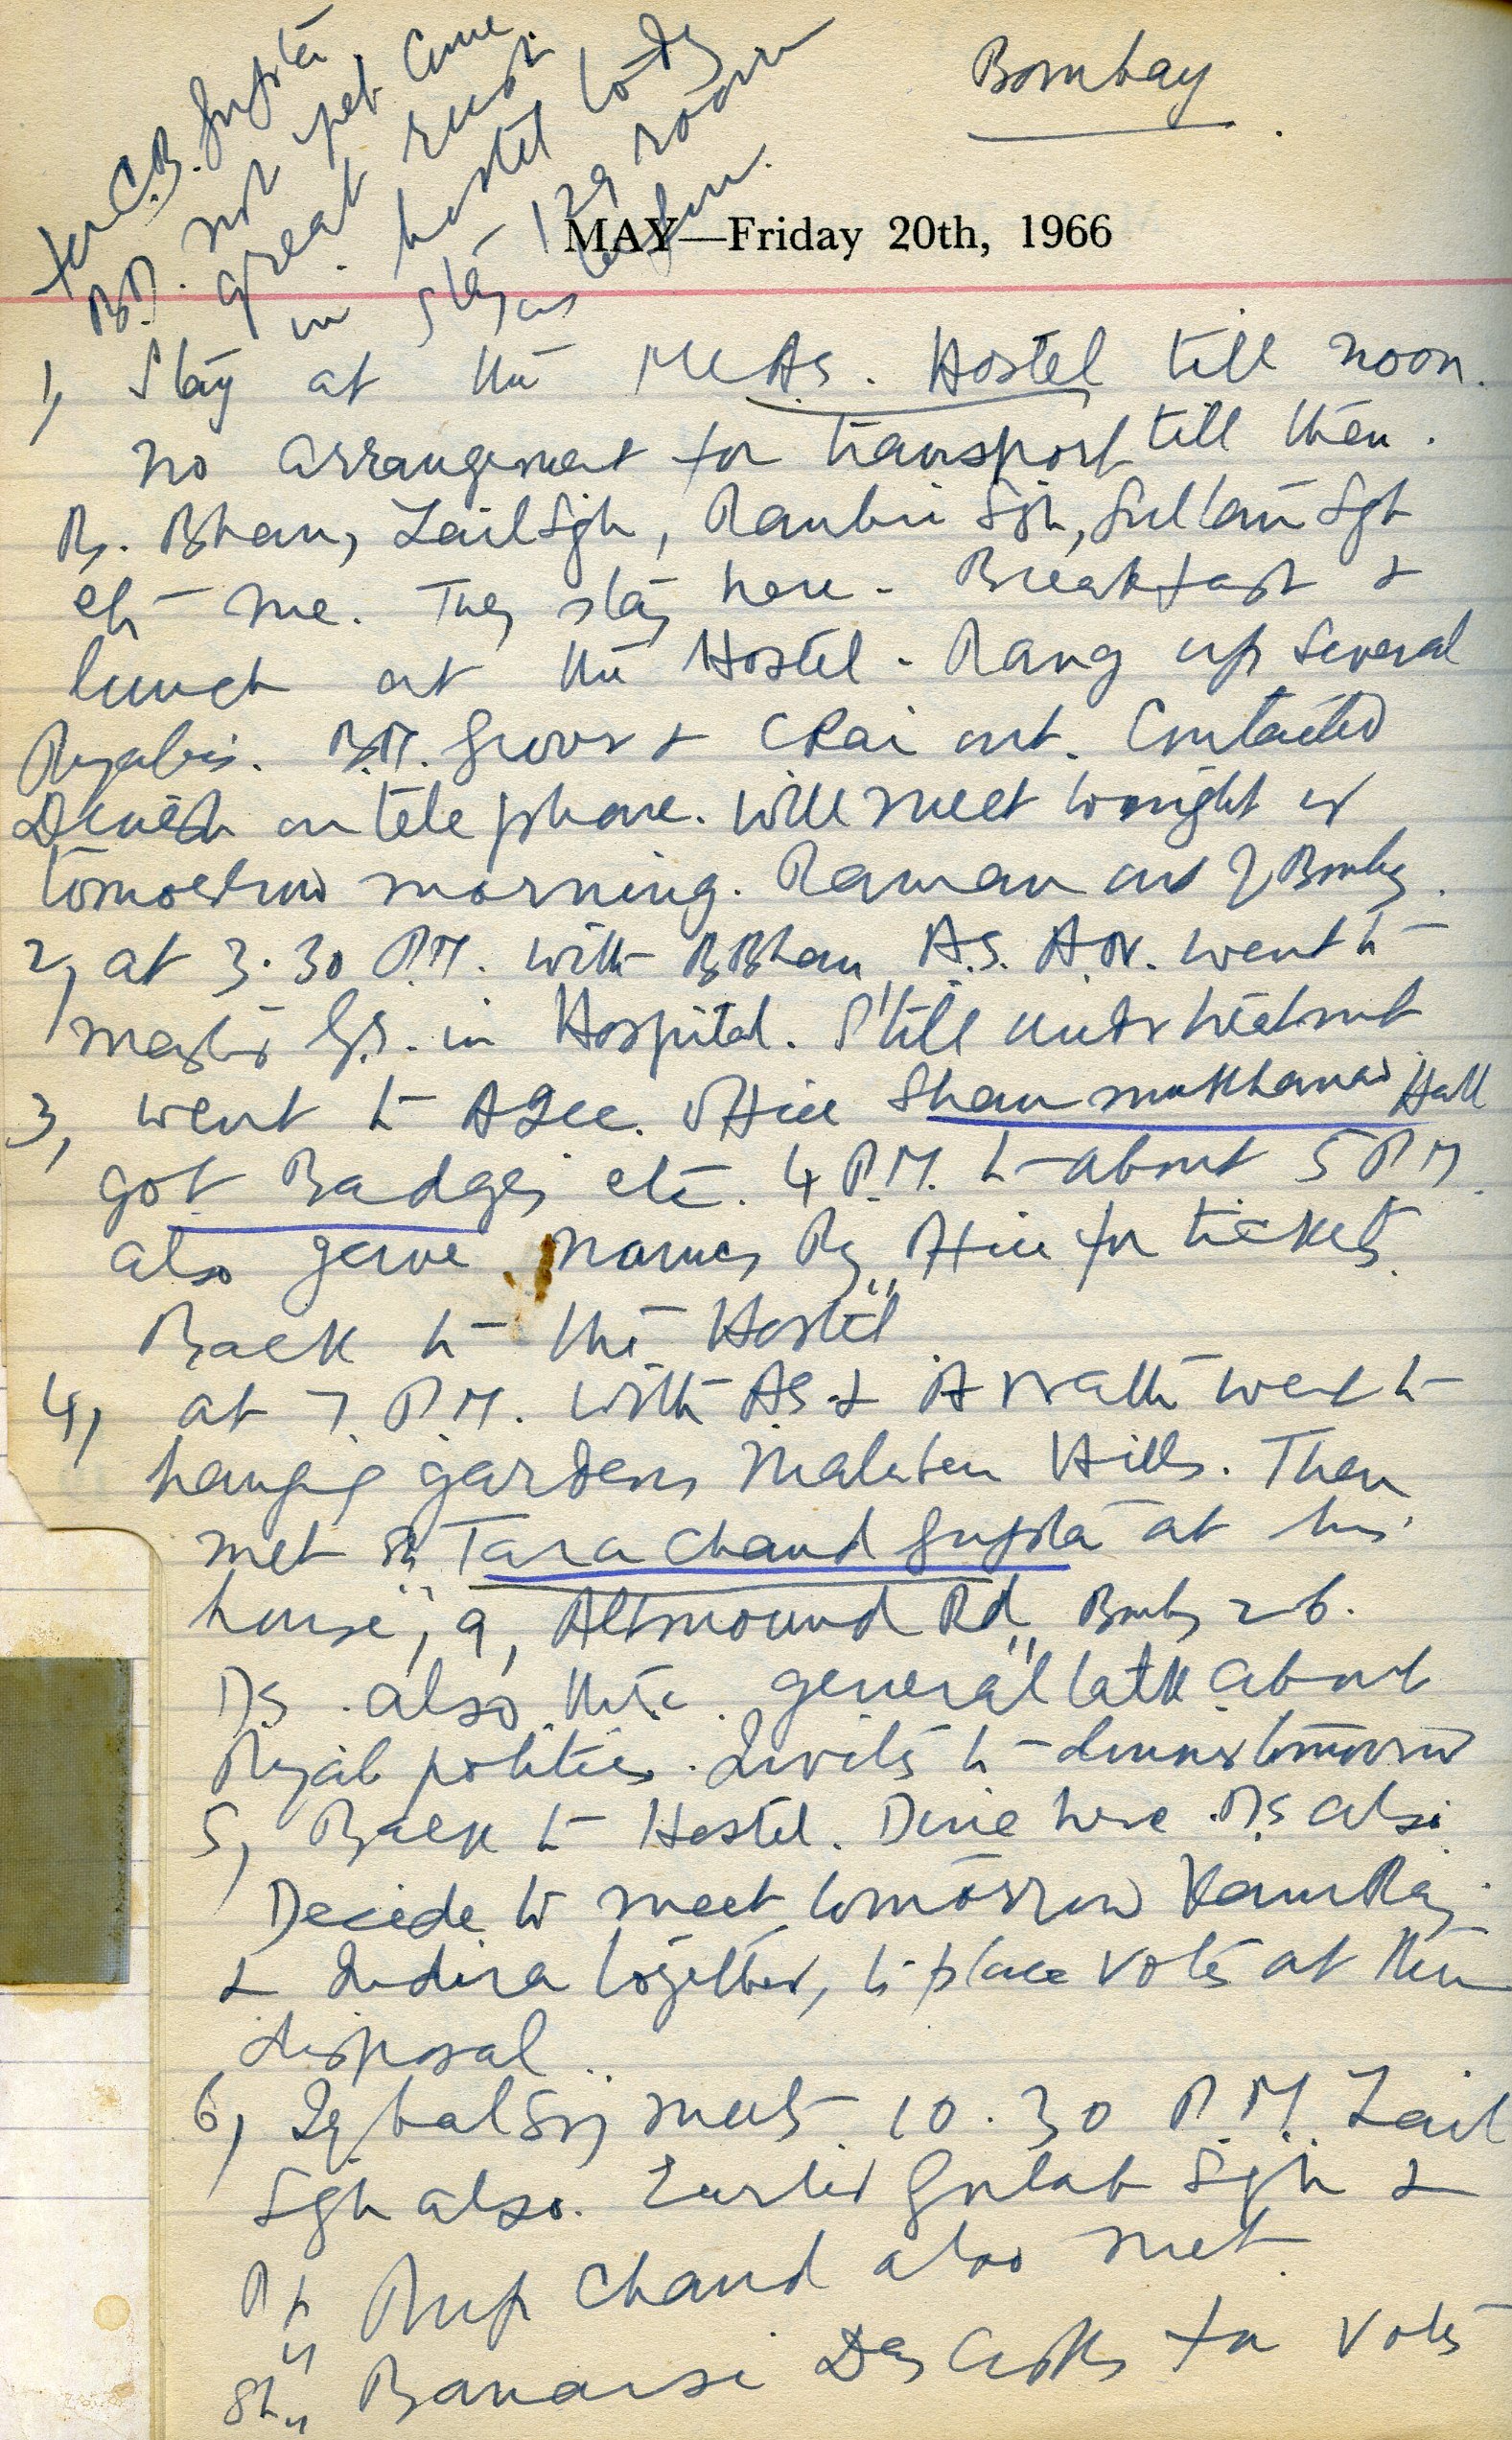 Bombay
for C.B. Gupta
B.D. not yet come
great rush
in hostel today
Stay 129 room
as before.
MAY—Friday 20th, 1966
1, Stay at the MLAs. Hostel till noon.
No arrangement for transport till then.
B. Bhan, Zail Sgh, Ranbir Sgh, Sultan Sgh
etc me. They stay here. Breakfast &
lunch at the Hostel. Rang up several
Punjabis. B.M. Grover & C Rai out. Contacted
Dinesh on telephone. Will meet tonight or
tomorrow morning. Raman out of Bombay.
2, at 3.30 P.M. with B Bhan, A.S. A.N. went to
Master G.S. in Hospital. Still under treatment
3, went to AICC. Office Shanmukhanand Hall
got Badges etc. 4 P.M. to about 5 P M.
also gave names Ry Office for tickets.
Back to the Hostel
4, at 7 P.M. with AS & A Nath went to
hanging gardens Malabar Hills. Then
met Sh Tara Chand Gupta at his
house, 9, Altmound Rd Bombay 26.
DS also there. general talk about
Punjab politics. Invites to dinner tomorrow
5, Back to Hostel. Dine here. DS also
Decide to meet tomorrow KamRaj
& Indira together, to place votes at their
disposal.
6, Iqbal Sgh meets 10.30 P.M. Zail
Sgh also. Earlier Gulab Sgh &
Pt Rup Chand also met.
Sh. Banarsi Das asks for votes